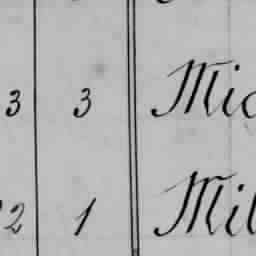 3 3 Mic
2 1 Mil